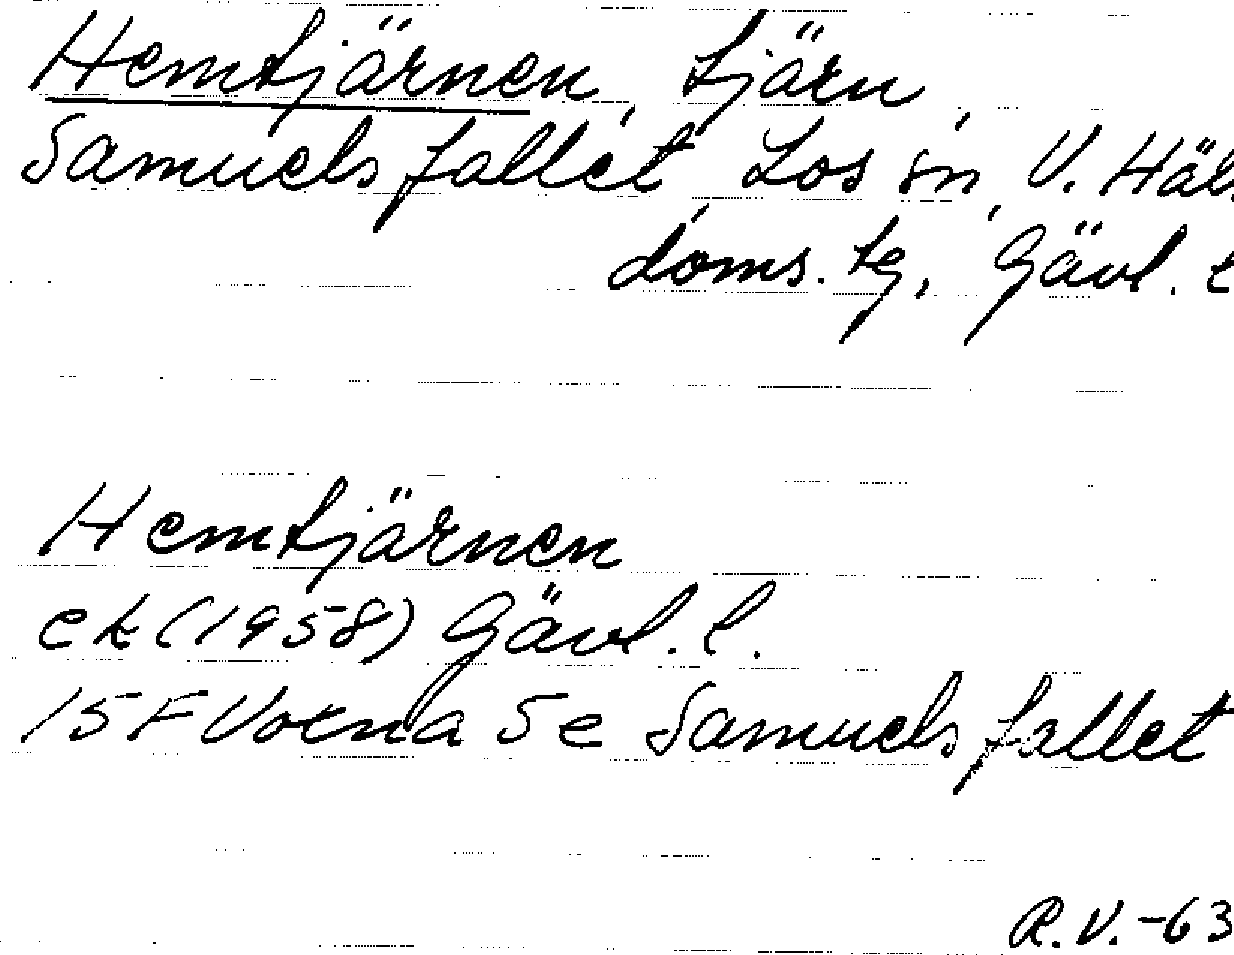 Hemtjärnen, tjärn,
Samuelsfallet, Los sn, V. Häls.
doms. tg, Gävl. l
Hemtjärnen
ek (1958) Gävl. l.
15 F Voxna 5 e Samuelsfallet
R.V.-63